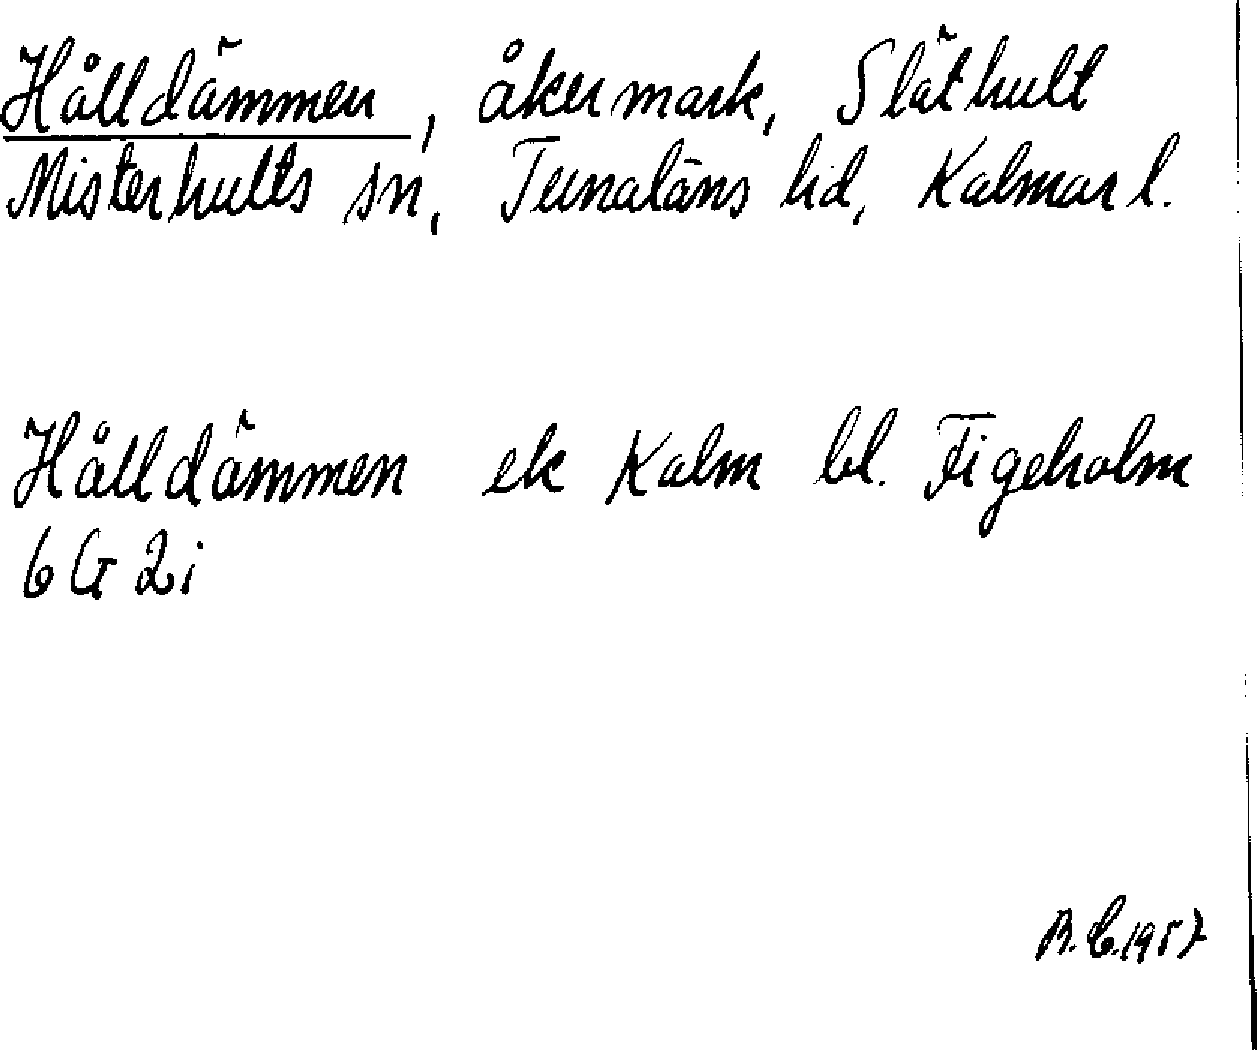 Hålldämmen, åkermark, Släthult
Misterhults sn, Tunaläns hd, Kalmar l.
Hålldämmen ek Kalm bl. Figeholm
6 G 2i
1957